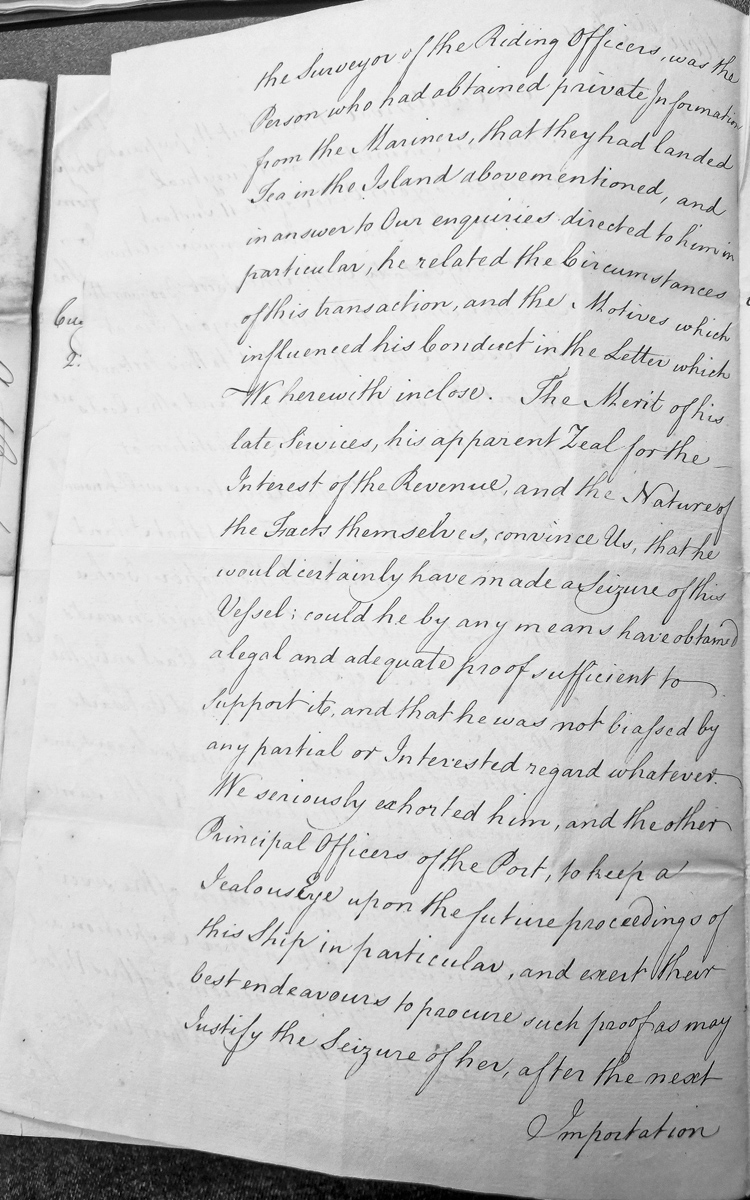 the Surveyor of the Riding Officers, was the
Person who had obtained private Information
from the Mariners, that they had landed
Tea in the Island abovementioned, and
in answer to Our enquiries directed to him in
particular, he related the Circumstances
of this transaction, and the Motives which
influenced his Conduct in the Letter which
2.
We herewith inclose. The Merit of his
late Services, his apparent Zeal for the
Interest of the Revenue, and the Nature of
the Facts themselves, convince Us, that he
would certainly have made a Seizure of this
Vessel; could he by any means have obtained
a legal and adequate proof sufficient to
support it, and that he was not biassed by
any partial or Interested regard whatever.
We seriously exhorted him, and the other
Principal Officers of the Port, to keep a
Jealous Eye upon the future proceedings of
this Ship in particular, and exert their
best endeavours to procure such proof as may
Justify the Seizure of her, after the next
Importation